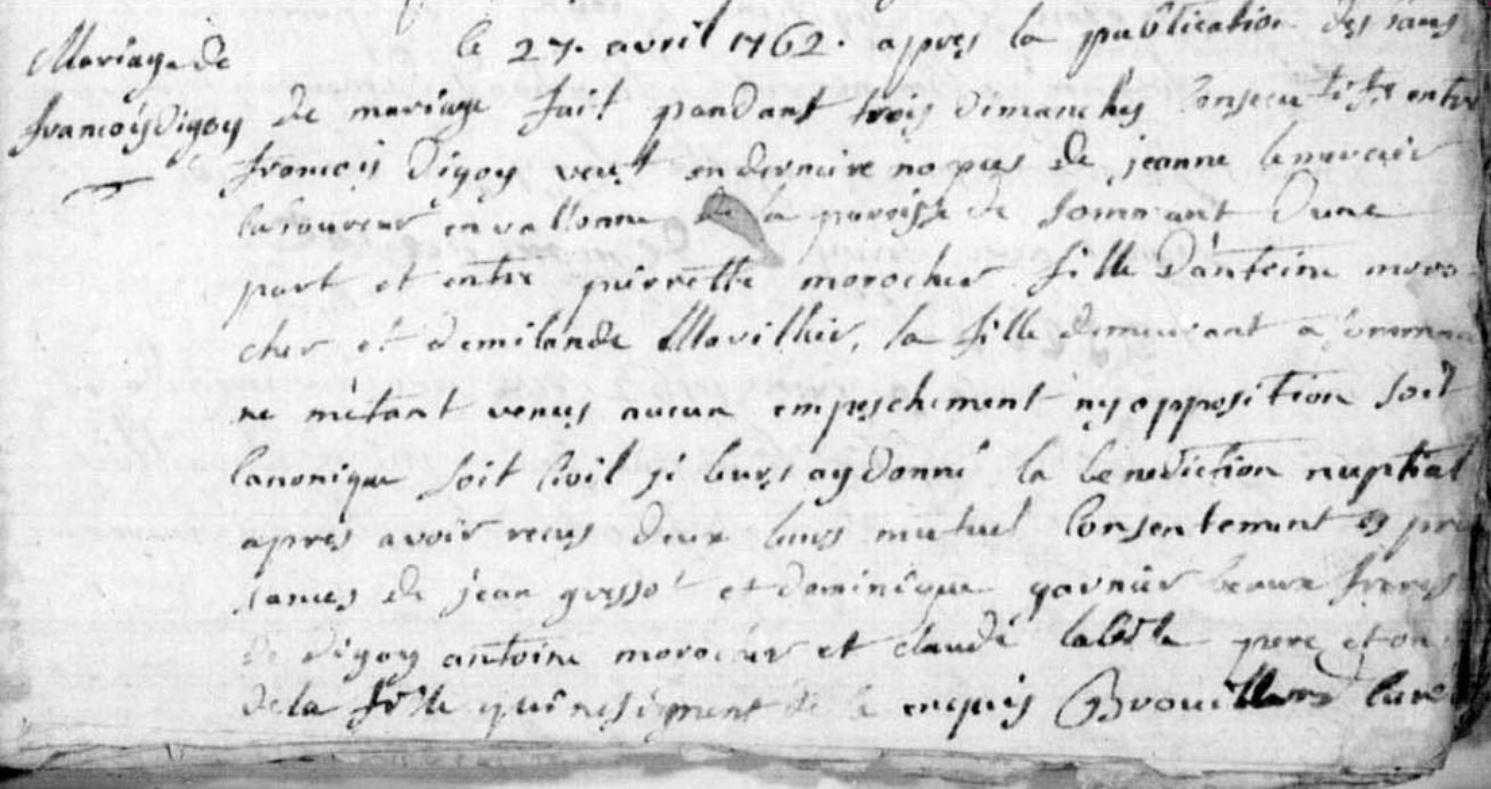 Mariage de
francois Digoy
le 27. avril 1762. apres la publication des bans
de mariage fait pandant trois dimanches Consecutifs entre
francois Digoy veuf en derniere nopces de jeanne lemercier
laboureur en vallonne de la paroisse de Sommant Dune
part et entre pierrette morocher fille D'antoine moro-
cher et demilande Mavilher, la fille demeurant a
ne m'etant venus aucun empeschement ny opposition soit
Canonique soit Civil je leurs ay donné la benediction nuptial
apres avoir recus deux leurs mutuel Consentement es pre
sances de jean gusso et dominique garnier beaux freres
de digoy antoine morocher et claude pere et on
de la fille qui ne signent de ce enquis Brouillard Curé